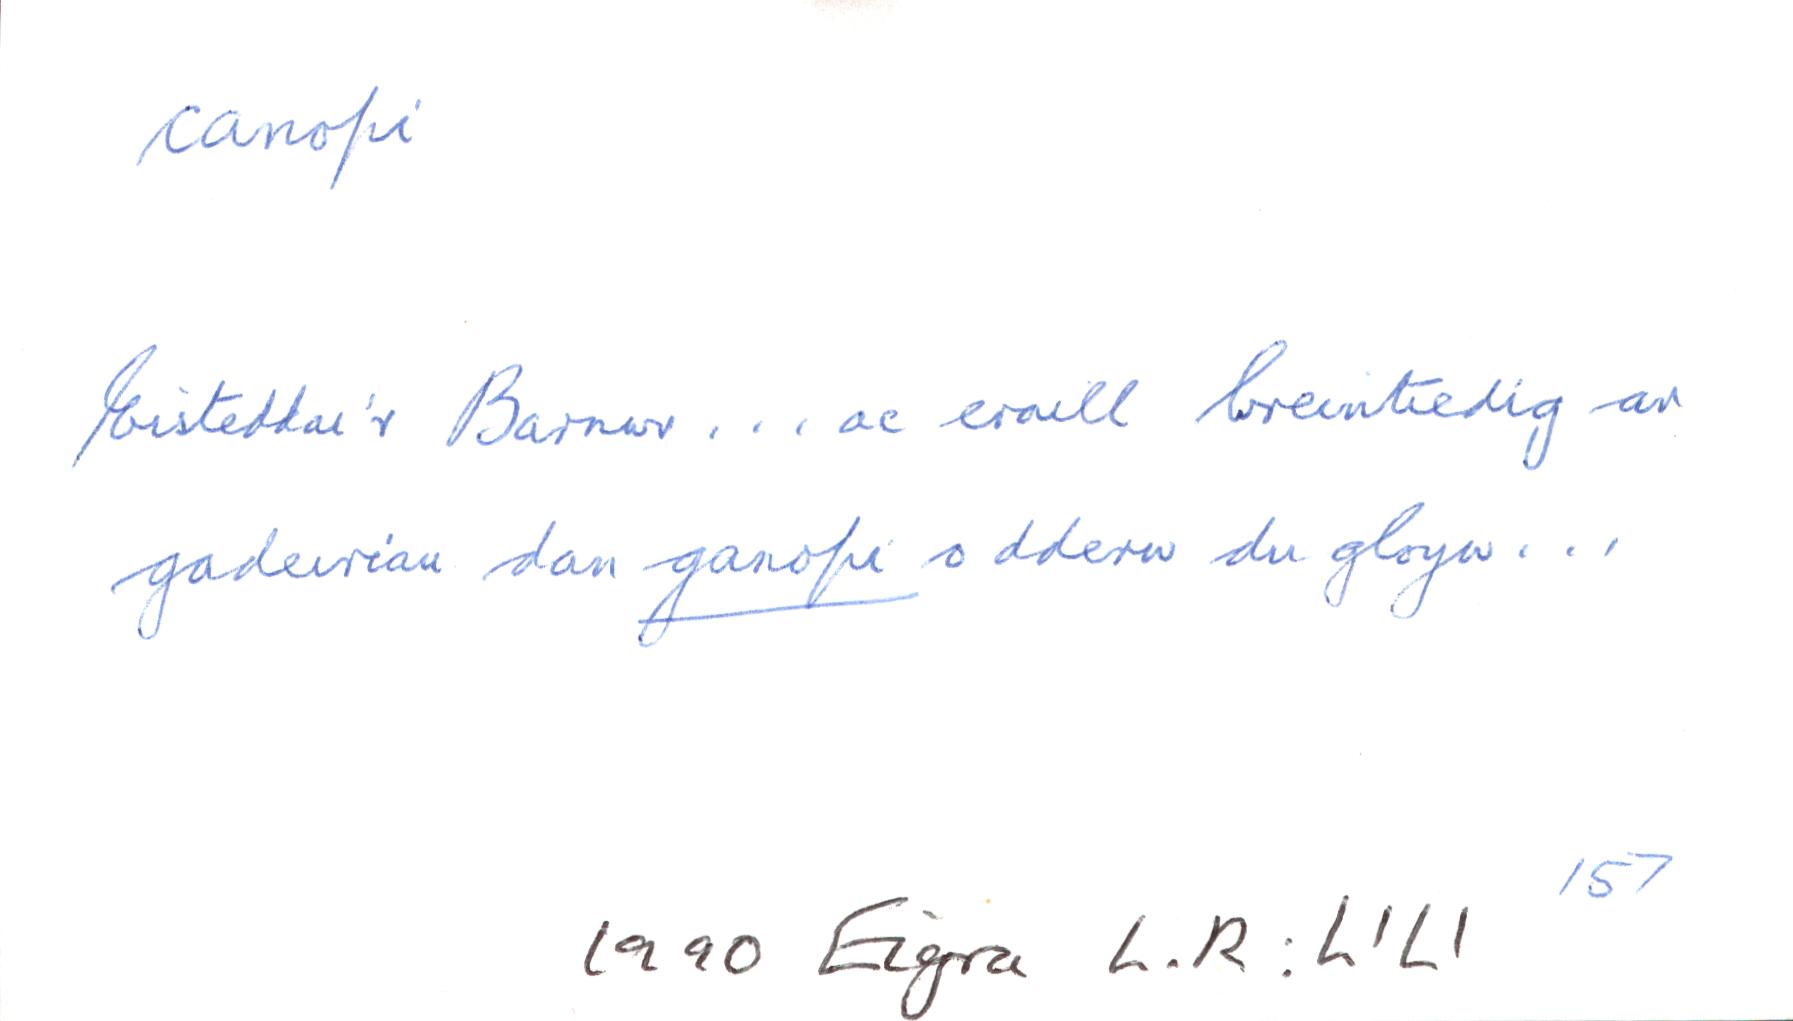 canopi
Eisteddai'r Barnwr ... ac eraill breintiedig ar
gadeiriau dan ganopi o dderw du gloyw ...
157
1990 Eigra L.R : Ll Ll